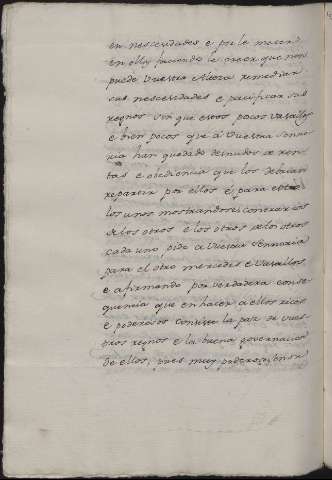 en nescesidades e por le
en ellas faciendo le creer que non
puede Vuestra Alteza remediar
sus nescesidades e pacificar sus
regnos sin que esos pocos vasallos
e bien pocos que á Vuestra Senno
ria han quedado deinudos de ren
tas e obediencia que los debaian
repartir por ellos é para esto
los unos mostrandose contrarios
de los otros e los otros de los otros
cada uno pide a Vuestra Sennoria
para el otro mercedes e Vasallos
e afirmando por verdadera conse
quencia que en hacer a ellos ricos
e poderosos consiste la paz de vues
tros regnos e la buena governacion
de ellos; pues muy poderoso Sennor